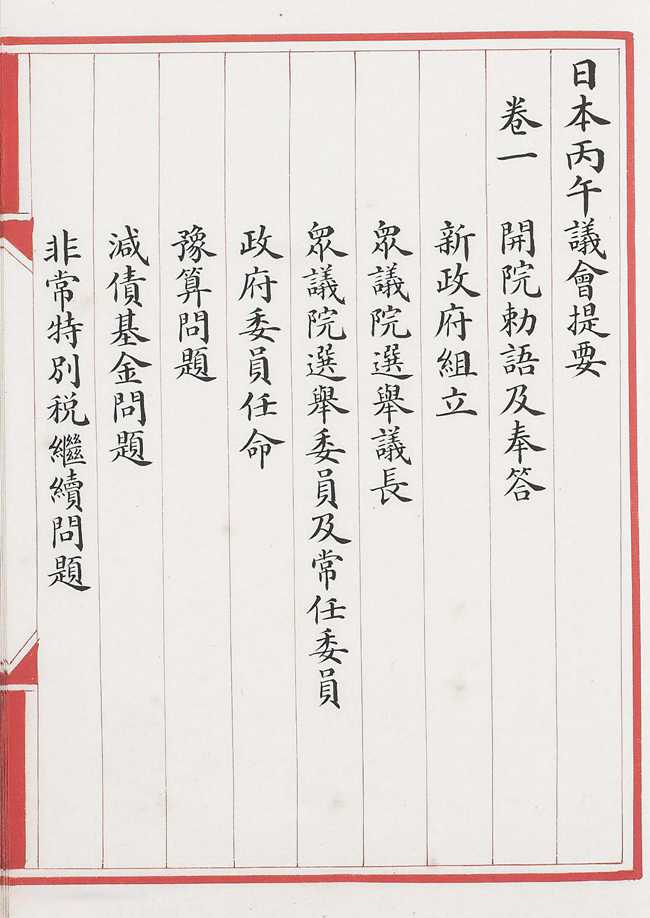 日本丙午議會提要
卷一 開院勅語及奉答
新政府組立
衆議院選舉議長
衆議院選舉委員及常任委員
政府委員任命
豫算問題
減債基金問題
非常特別税繼續問題